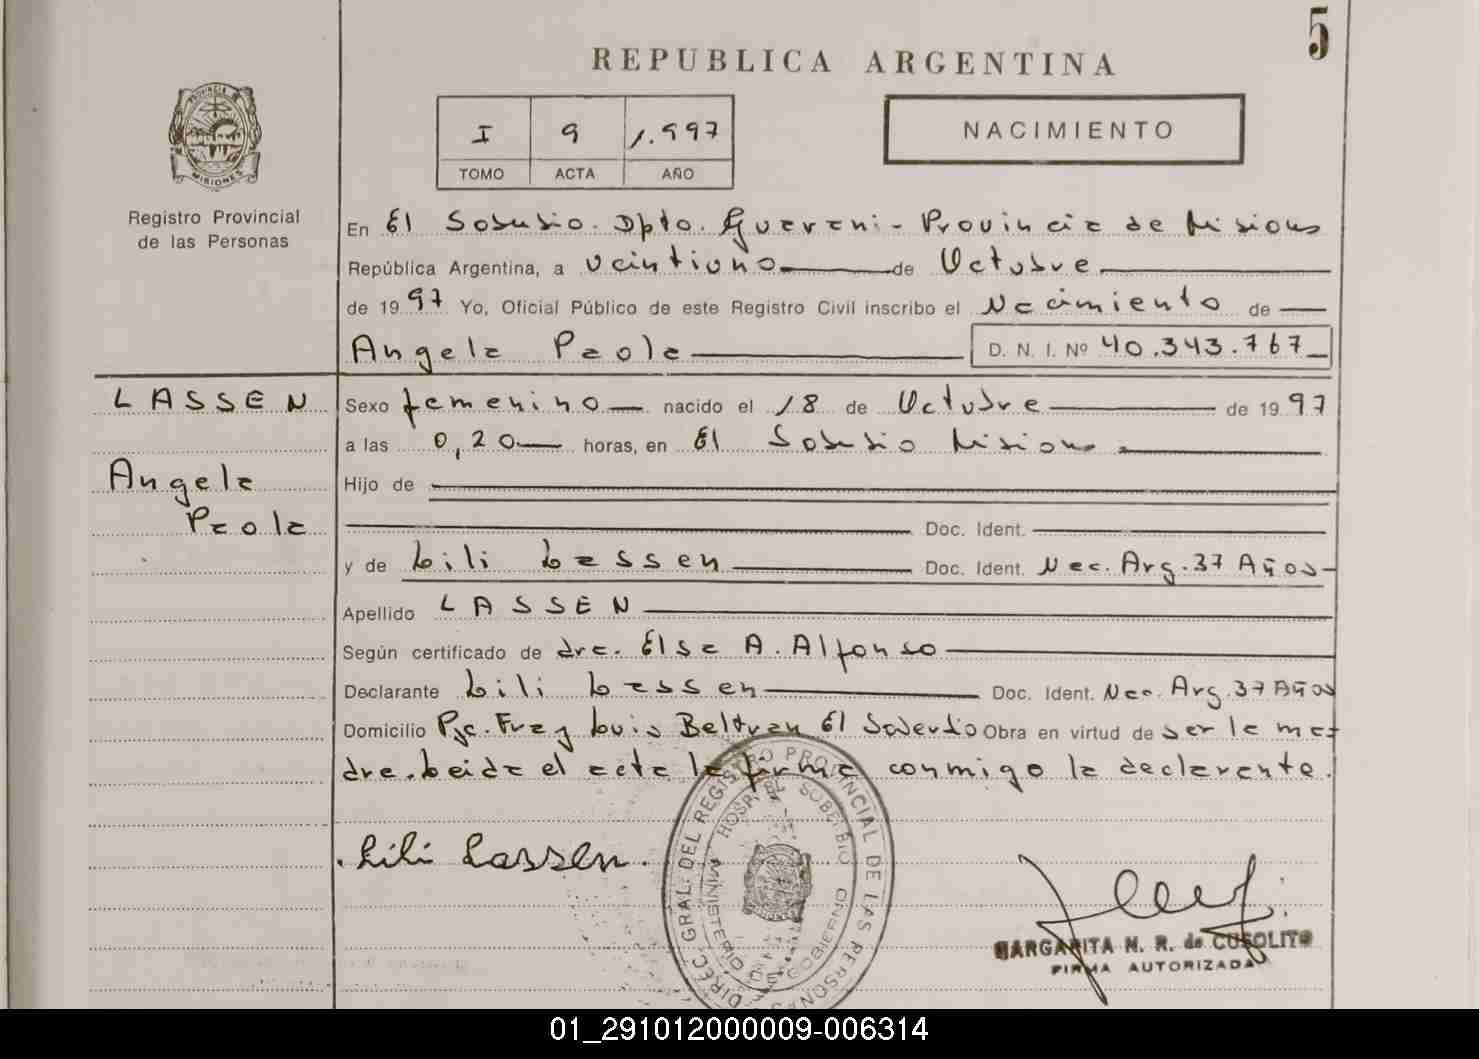 5
REPUBLICA ARGENTINA
I 9 1.997
TOMO ACTA AÑO
NACIMIENTO
PROVINCIA DE
MISIONES
Registro Provincial
de las Personas
En El Soberbio. Dpto. Guarani - Provincia de Misiones
República Argentina, a veintiuno de Octubre
de 1997 Yo, Oficial Público de este Registro Civil inscribo el Nacimiento de
Angela Paola D. N. I. Nº 40.343.767
LASSEN
Angela
Paola
Sexo femenino nacido el 18 de Octubre de 1997
a las 0,20 horas, en El Soberbio Misiones
Hijo de
Doc. Ident.
y de Lili Lassen Doc. Ident. Nac. Arg. 37 Años
Apellido LASSEN
Según certificado de dra. Elsa A. Alfonso
Declarante Lili Lassen Doc. Ident. Nac. Arg. 37 Años
Domicilio Pje. Fray Luis Beltran El Soberbio Obra en virtud de ser la ma-
dre. Leida el acta la firma conmigo la declarante.
Lili Lassen.
DIREC. GRAL. DEL REGISTRO PROVINCIAL DE LAS PERSONAS
MINISTERIO DE GOBIERNO
HOSPITAL SOBERBIO
MARGARITA N. R. de CUSOLITO
FIRMA AUTORIZADA
01_291012000009-006314